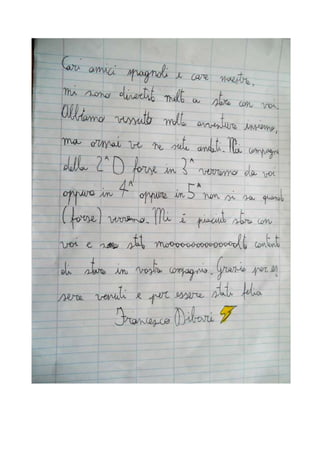 Cari amici spagnoli e care maestre,
mi sono divertito molto a stare con voi
Abbiamo vissuto molte avventure insieme,
ma ormai ve ne siete andati. Noi compagni
della 2^D forse in 3^ verremo da voi
oppure in 4^ oppure in 5^ non si sa quando
(forse) verremo. Mi è piaciuto stare con
voi e sono stato moooooooooooolto contento
di stare in vostra compagnia. Grazie per es
sere venuti e per essere stati felici
Francesco Dibari